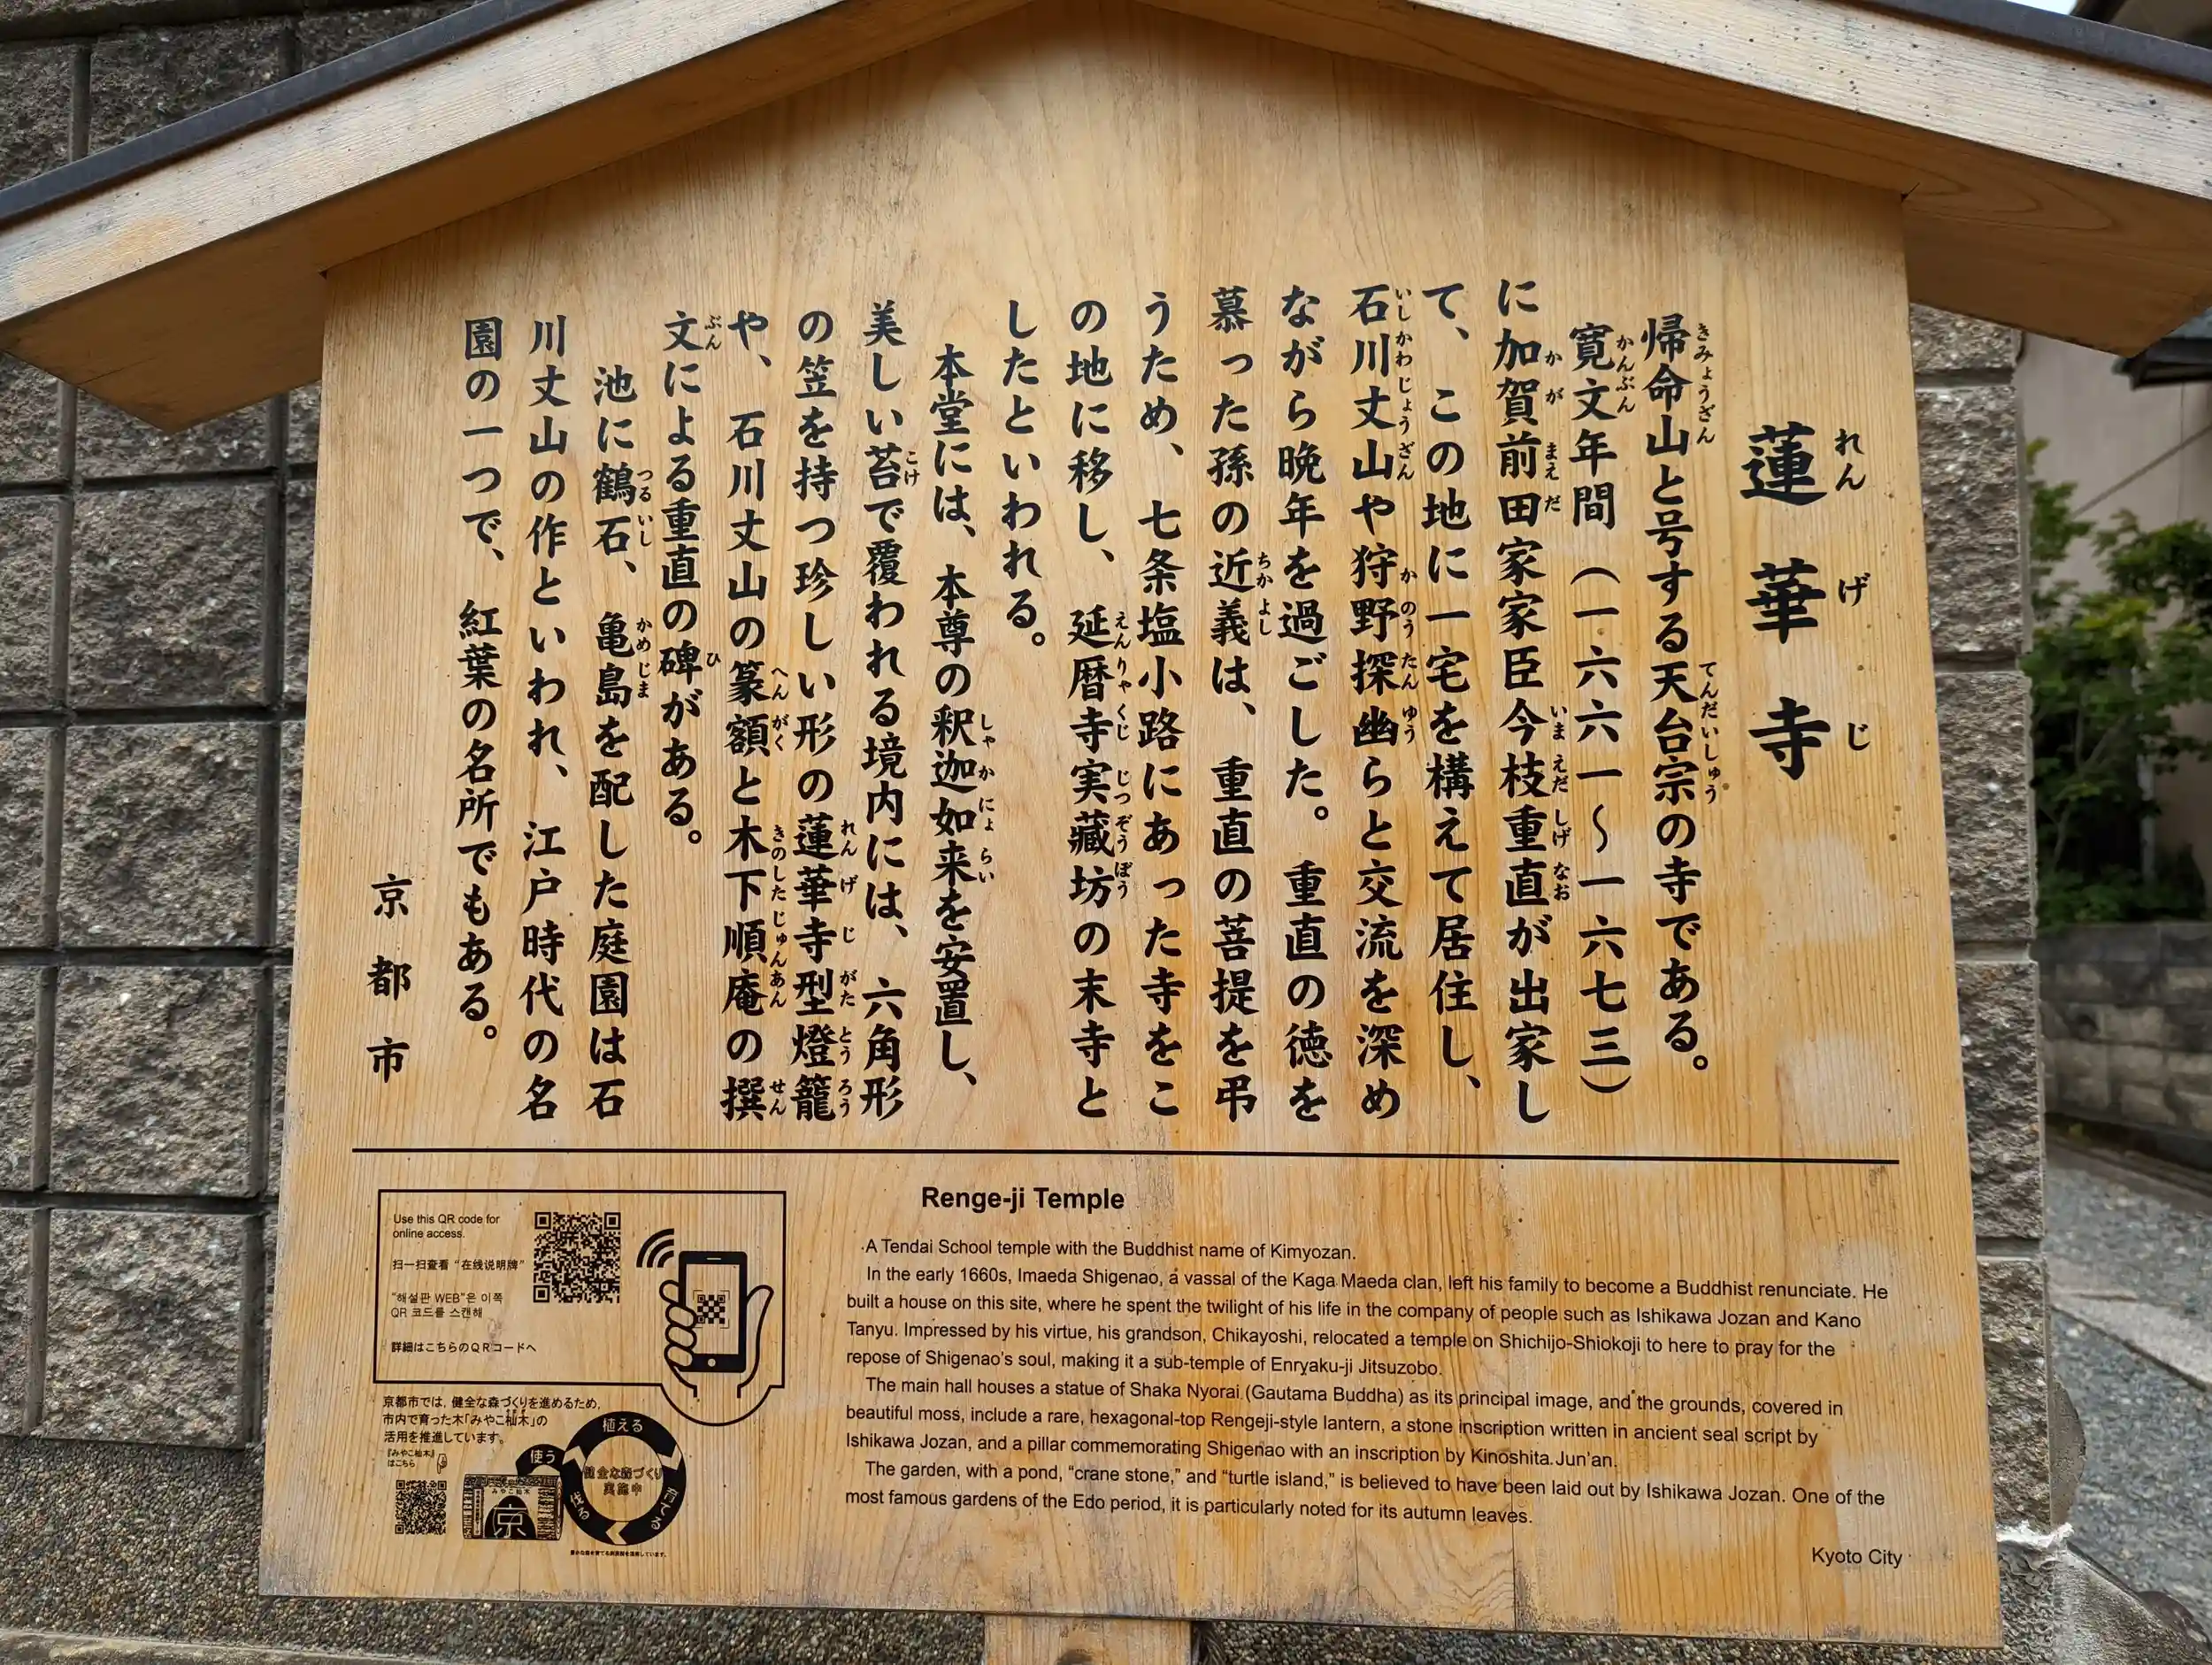 蓮華寺
帰命山と号する天台宗の寺である。
寛文年間(一六六一～一六七三)
に加賀前田家家臣今枝重直が出家し
て、この地に一宅を構えて居住し、
石川丈山や狩野探幽らと交流を深め
ながら晩年を過ごした。重直の徳を
慕った孫の近義は、重直の菩提を弔
うため、七条塩小路にあった寺をこ
の地に移し、延暦寺実蔵坊の末寺と
したといわれる。
本堂には、本尊の釈迦如来を安置し、
美しい苔で覆われる境内には、六角形
の笠を持つ珍しい形の蓮華寺型燈籠
や、石川丈山の篆額と木下順庵の撰
文による重直の碑がある。
池に鶴石、亀島を配した庭園は石
川丈山の作といわれ、江戸時代の名
園の一つで、紅葉の名所でもある。
京都市
Renge-ji Temple
A Tendai School temple with the Buddhist name of Kimyozan.
In the early 1660s, Imaeda Shigenao, a vassal of the Kaga Maeda clan, left his family to become a Buddhist renunciate. He
built a house on this site, where he spent the twilight of his life in the company of people such as Ishikawa Jozan and Kano
Tanyu. Impressed by his virtue, his grandson, Chikayoshi, relocated a temple on Shichijo-Shiokoji to here to pray for the
repose of Shigenao's soul, making it a sub-temple of Enryaku-ji Jitsuzobo.
The main hall houses a statue of Shaka Nyorai (Gautama Buddha) as its principal image, and the grounds, covered in
beautiful moss, include a rare, hexagonal-top Rengeji-style lantern, a stone inscription written in ancient seal script by
Ishikawa Jozan, and a pillar commemorating Shigenao with an inscription by Kinoshita Jun'an.
The garden, with a pond, “crane stone,” and “turtle island,” is believed to have been laid out by Ishikawa Jozan. One of the
most famous gardens of the Edo period, it is particularly noted for its autumn leaves.
Kyoto City
Use this QR code for
online access.
扫一扫查看“在线说明牌”
“해설판 WEB”은 이쪽
QR 코드를 스캔해
詳細はこちらのQRコードへ
京都市では、健全な森づくりを進めるため、
市内で育った木「みやこ杣木」の
活用を推進しています。
『みやこ杣木』
はこちら
使う
植える
育てる
伐る
健全な森づくり
実施中
みやこ杣木
京